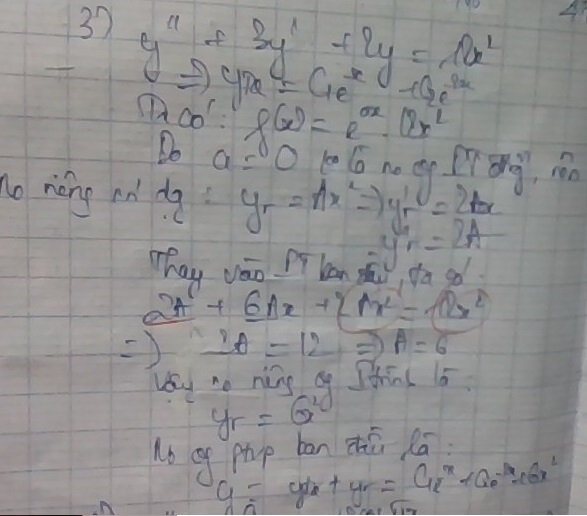 37) y'' + 3y' + 2y = 12x²
=> yTx = C₁e⁻ˣ + C₂e⁻²ˣ
Ta có: f(x) = e⁰ˣ 12x²
Do a = 0 ko là no của PT đtg, nên
no riêng có dg: yr = Ax² => y'r = 2Ax
y''r = 2A
Thay vào PT ban đầu, ta có:
2A + 6Ax + 2Ax² = 12x²
=> 2A = 12 => A = 6
Vậy no riêng của Ptrình là:
yr = 6x²
No của ptrp ban đầu là:
y = yTx + yr = C₁e⁻ˣ + C₂e⁻²ˣ + 6x²